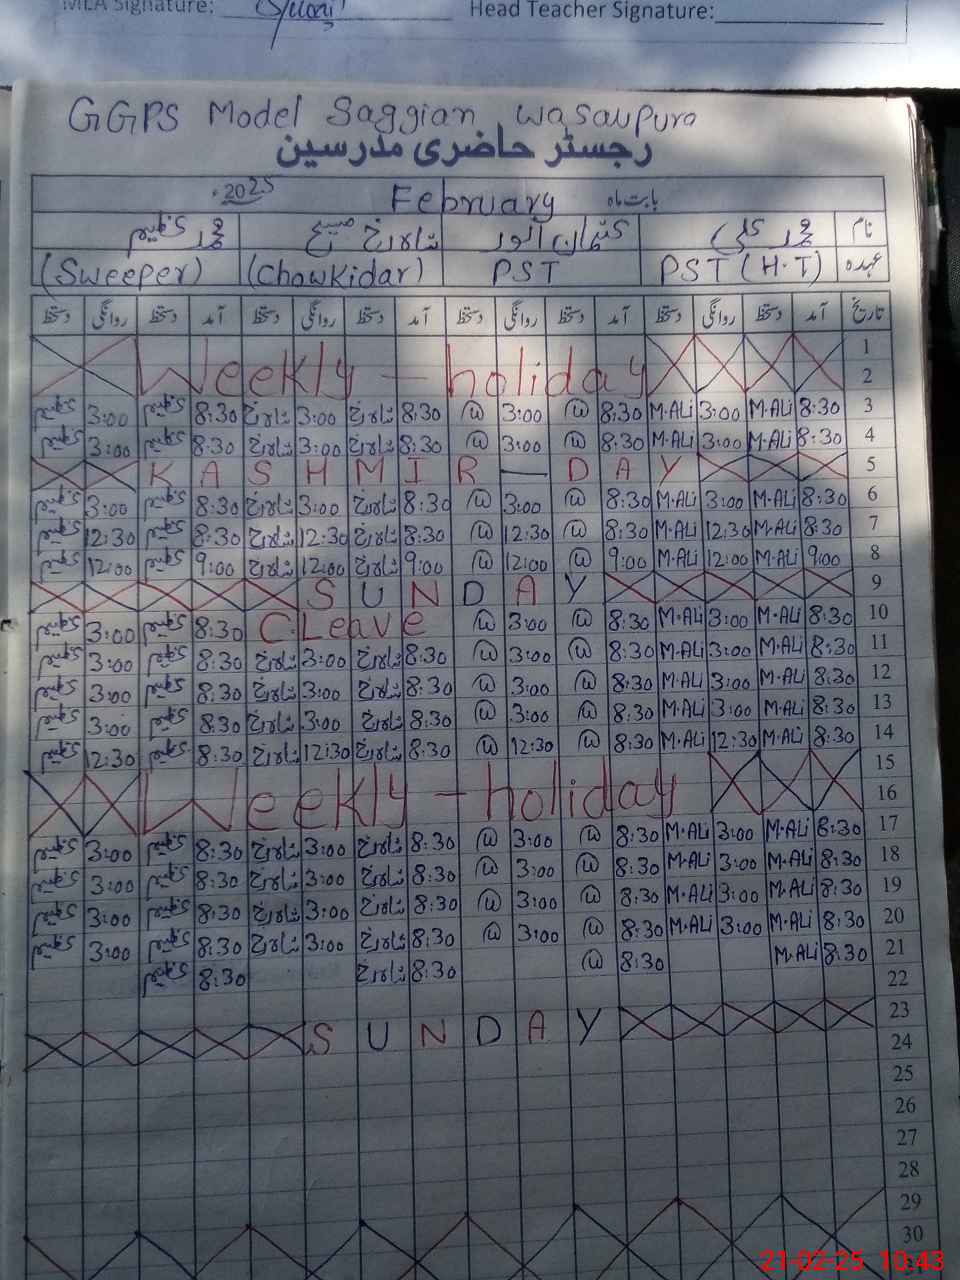 MEA Signature: Head Teacher Signature:
GGPS Model Saggian Wasanpura
رجسٹر حاضری مدرسین
بابت ماہ February 2025
نام محمد علی کنعان انور شاہرخ مسیح محمد عظیم
عہدہ PST (H.T) PST (Chowkidar) (Sweeper)
تاریخ آمد دستخط روانگی دستخط آمد دستخط روانگی دستخط آمد دستخط روانگی دستخط آمد دستخط روانگی دستخط
1
2 Weekly - holiday
3 8:30 M.ALi 3:00 M.ALi 8:30 3:00 8:30 شاہرخ 3:00 شاہرخ 8:30 عظیم 3:00 عظیم
4 8:30 M.ALi 3:00 M.ALi 8:30 3:00 8:30 شاہرخ 3:00 شاہرخ 8:30 عظیم 3:00 عظیم
5 KASHMIR - DAY
6 8:30 M.ALi 3:00 M.ALi 8:30 3:00 8:30 شاہرخ 3:00 شاہرخ 8:30 عظیم 3:00 عظیم
7 8:30 M.ALi 12:30 M.ALi 8:30 12:30 8:30 شاہرخ 12:30 شاہرخ 8:30 عظیم 12:30 عظیم
8 9:00 M.ALi 12:00 M.ALi 9:00 12:00 9:00 شاہرخ 12:00 شاہرخ 9:00 عظیم 12:00 عظیم
9 SUNDAY
10 8:30 M.ALi 3:00 M.ALi 8:30 3:00 C.Leave 8:30 عظیم 3:00 عظیم
11 8:30 M.ALi 3:00 M.ALi 8:30 3:00 8:30 شاہرخ 3:00 شاہرخ 8:30 عظیم 3:00 عظیم
12 8:30 M.ALi 3:00 M.ALi 8:30 3:00 8:30 شاہرخ 3:00 شاہرخ 8:30 عظیم 3:00 عظیم
13 8:30 M.ALi 3:00 M.ALi 8:30 3:00 8:30 شاہرخ 3:00 شاہرخ 8:30 عظیم 3:00 عظیم
14 8:30 M.ALi 12:30 M.ALi 8:30 12:30 8:30 شاہرخ 12:30 شاہرخ 8:30 عظیم 12:30 عظیم
15
16 Weekly - holiday
17 8:30 M.ALi 3:00 M.ALi 8:30 3:00 8:30 شاہرخ 3:00 شاہرخ 8:30 عظیم 3:00 عظیم
18 8:30 M.ALi 3:00 M.ALi 8:30 3:00 8:30 شاہرخ 3:00 شاہرخ 8:30 عظیم 3:00 عظیم
19 8:30 M.ALi 3:00 M.ALi 8:30 3:00 8:30 شاہرخ 3:00 شاہرخ 8:30 عظیم 3:00 عظیم
20 8:30 M.ALi 3:00 M.ALi 8:30 3:00 8:30 شاہرخ 3:00 شاہرخ 8:30 عظیم 3:00 عظیم
21 8:30 M.ALi 8:30 8:30 شاہرخ 8:30 عظیم
22
23 SUNDAY
24
25
26
27
28
29
30
21-02-25 10:43